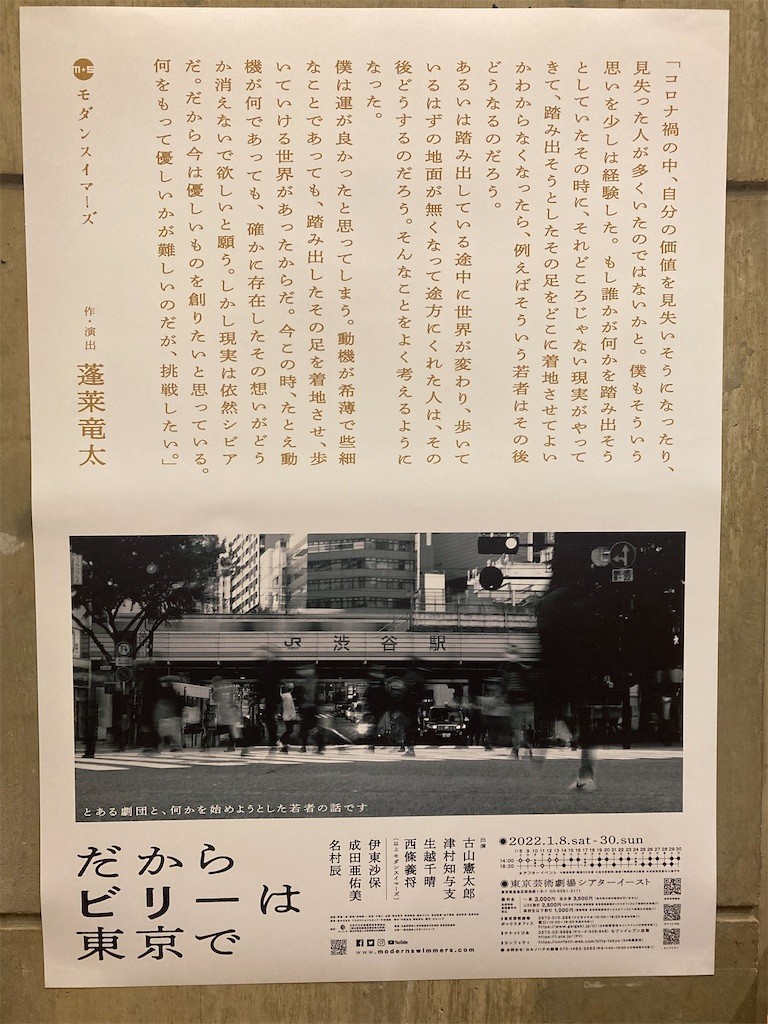 「コロナ禍の中、自分の価値を見失いそうになったり、
見失った人が多くいたのではないかと。僕もそういう
思いを少しは経験した。もし誰かが何かを踏み出そう
としていたその時に、それどころじゃない現実がやって
きて、踏み出そうとしたその足をどこに着地させてよい
かわからなくなったら、例えばそういう若者はその後
どうなるのだろう。
あるいは踏み出している途中に世界が変わり、歩いて
いるはずの地面が無くなって途方にくれた人は、その
後どうするのだろう。そんなことをよく考えるように
なった。
僕は運が良かったと思ってしまう。動機が希薄で些細
なことであっても、踏み出したその足を着地させ、歩
いていける世界があったからだ。今この時、たとえ動
機が何であっても、確かに存在したその想いがどう
か消えないで欲しいと願う。しかし現実は依然シビア
だ。だから今は優しいものを創りたいと思っている。
何をもって優しいかが難しいのだが、挑戦したい。」
モダンスイマーズ
作・演出 蓬莱竜太
JR 渋谷駅
とある劇団と、何かを始めようとした若者の話です
だから
ビリーは
東京で
出演
古山憲太郎
津村知与支
生越千晴
西條義将
(以上モダンスイマーズ)
伊東沙保
成田亜佑美
名村辰
2022.1.8.sat-30.sun
14:00
18:30
東京芸術劇場シアターイースト
YouTube
www.modernswimmers.com